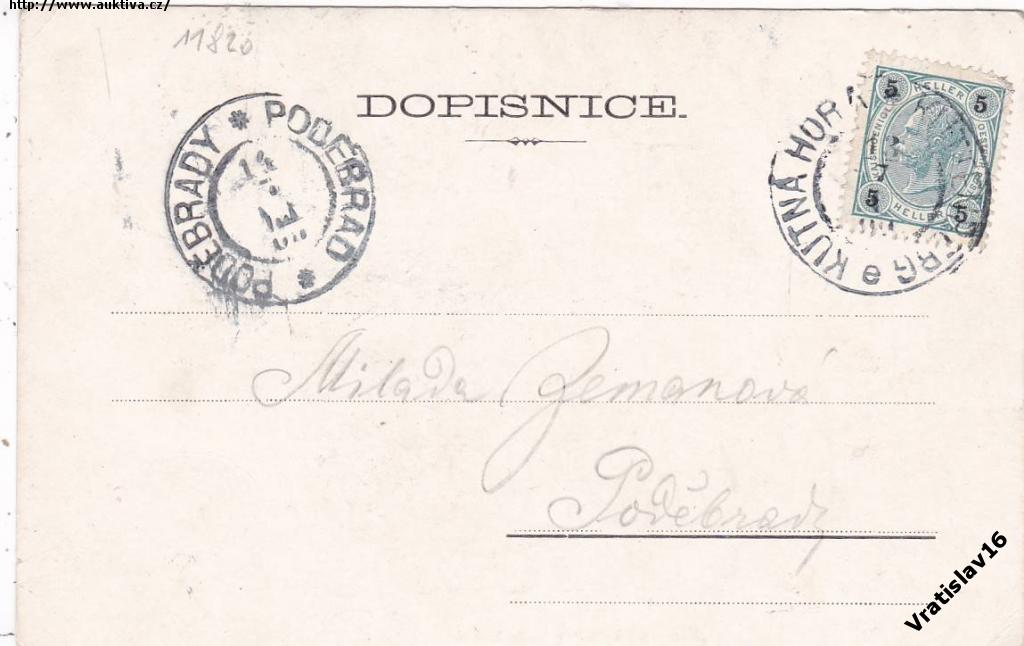 http://www.auktiva.cz/
11820
DOPISNICE.
PODĚBRADY * PODĚBRAD *
14
KUTNÁ HORA
BERG e
5 HELLER 5
5 HELLER 5
Milada Zemanová
Poděbrady
Vratislav16